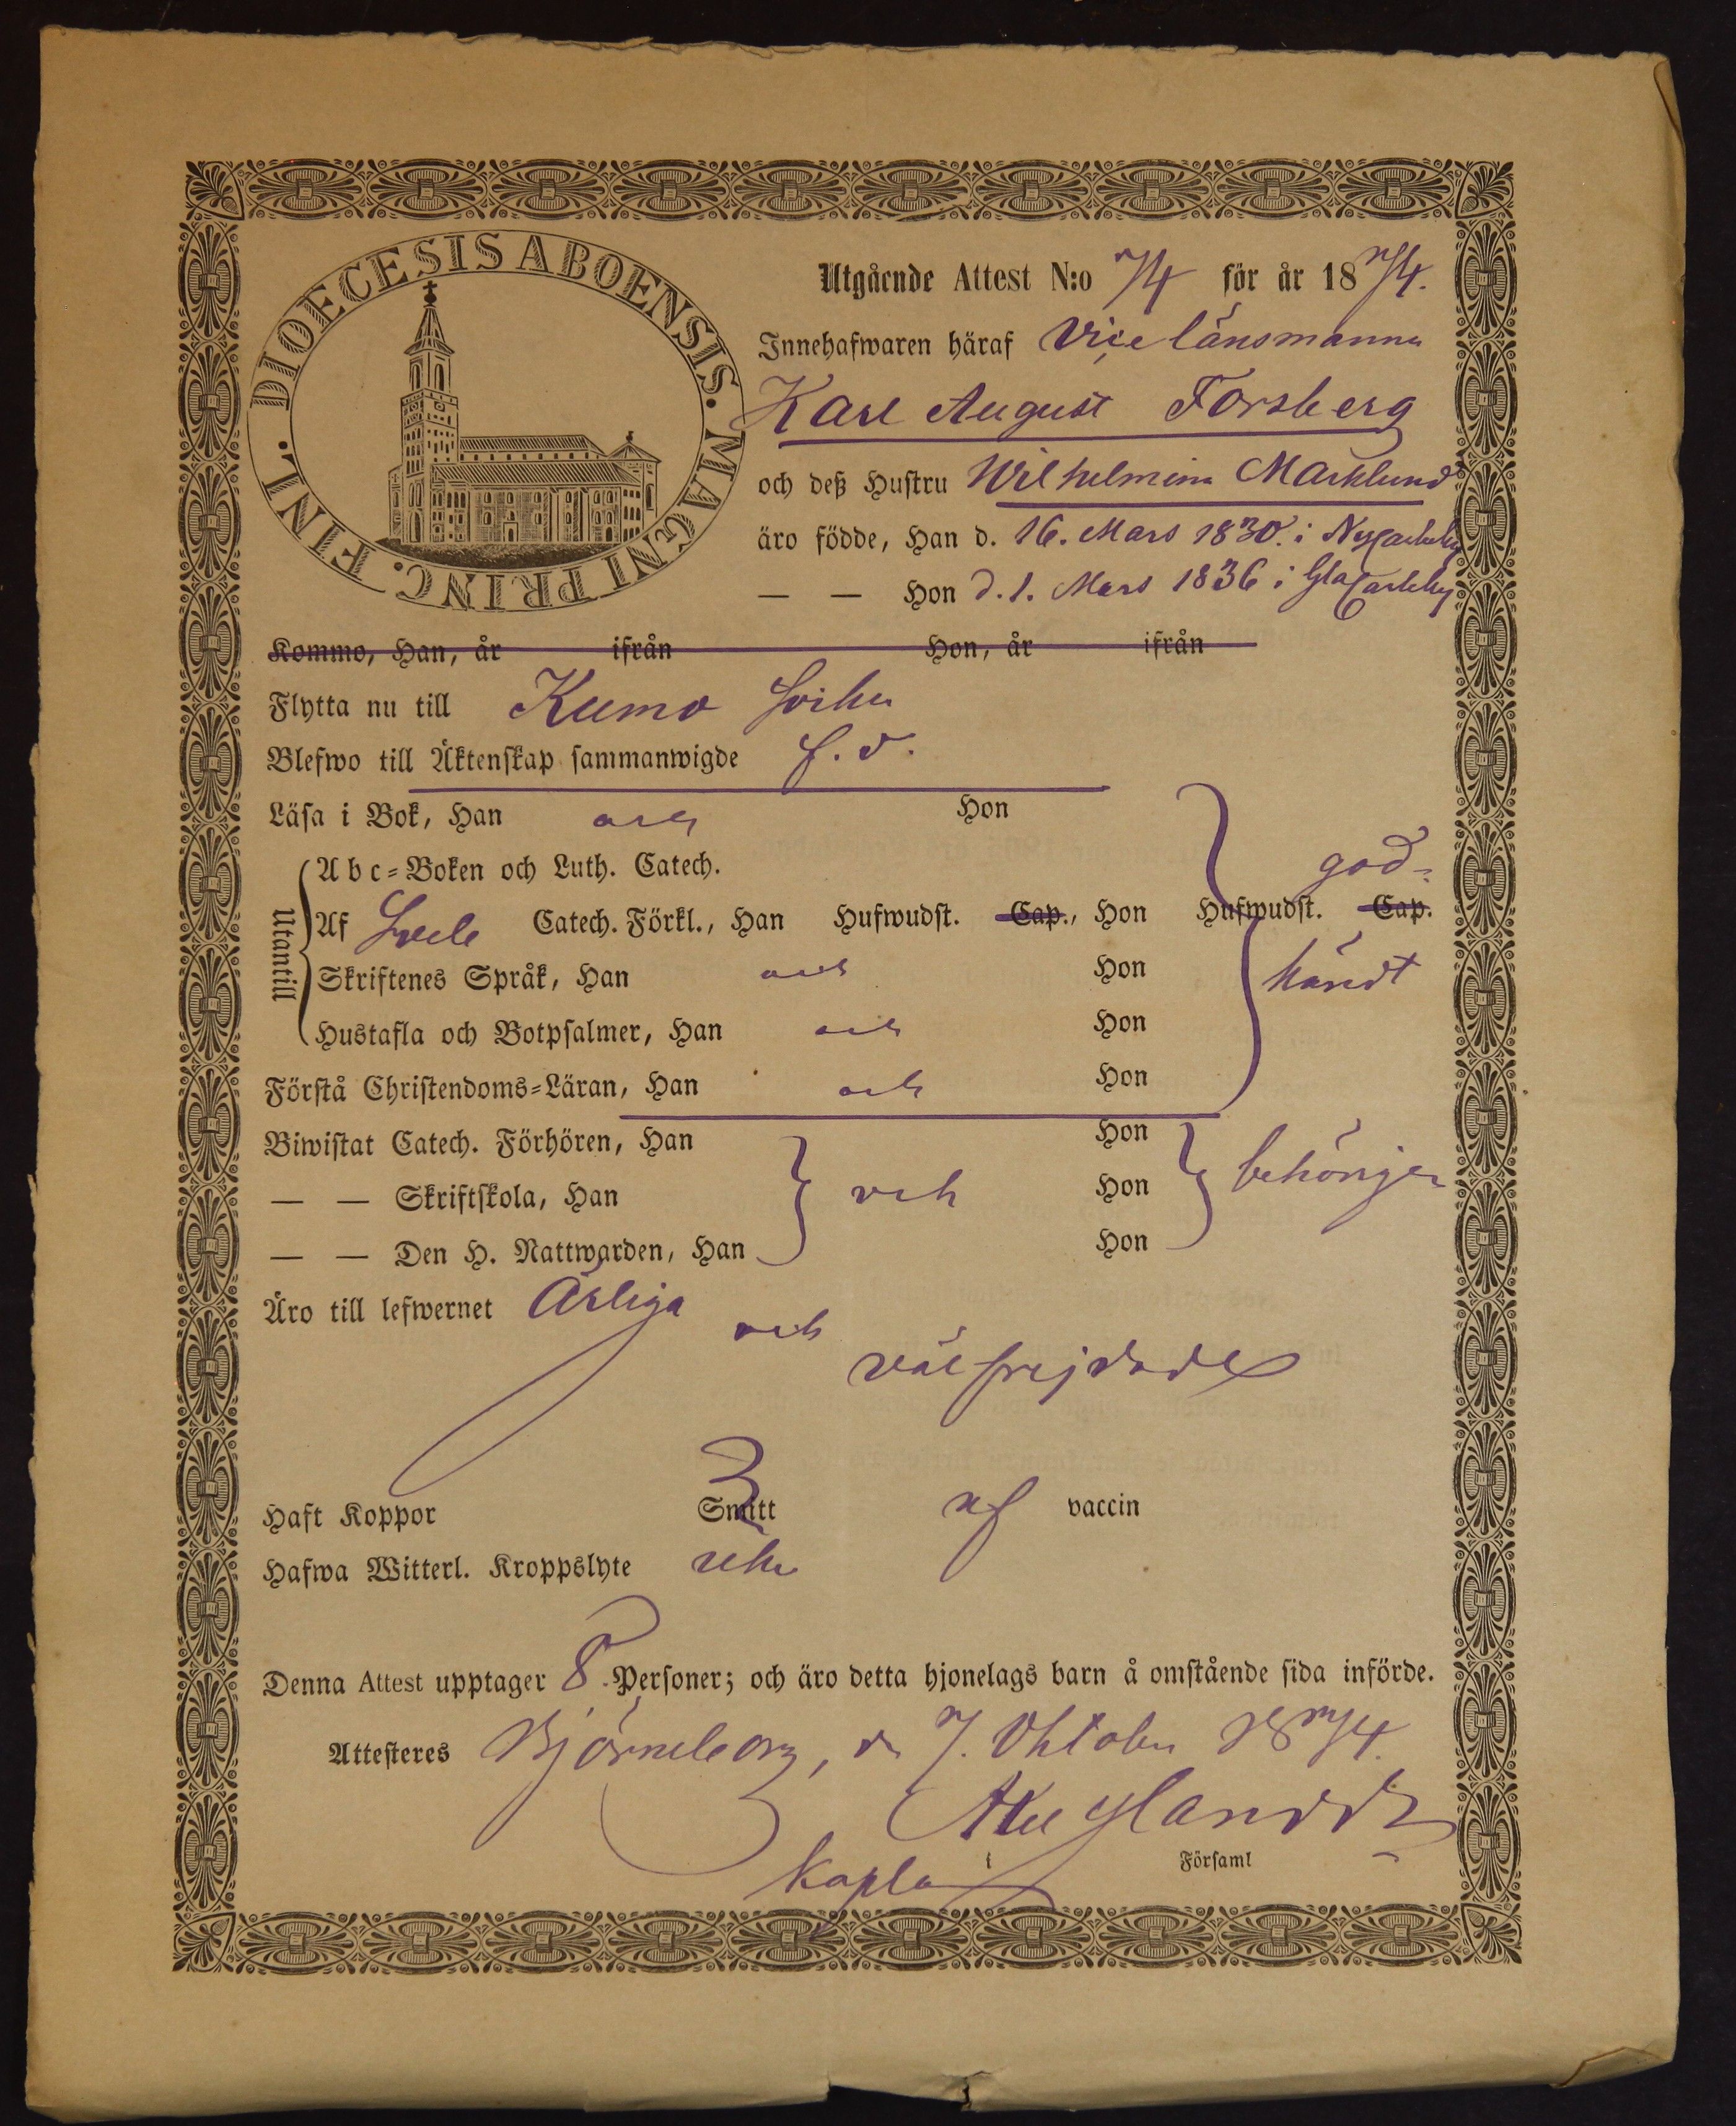 DIOECESIS ABOENSIS. MAGNI PRINC. FINL.
Utgående Attest N:o 74 för år 1874.
Innehafwaren häraf Vice länsmannen
Karl August Forsberg
och deß Hustru Wilhelmina Marklund
äro födde, Han d. 16. Mars 1830. i Nycarleby
— — Hon d. 1. Mars 1836 i Gla Carleby
Kommo, Han, år ifrån Hon, år ifrån
Flytta nu till Kumo
Blefwo till Äktenskap sammanwigde
Läsa i Bok, Han och Hon
Abc-Boken och Luth. Catech. god-
Utantill
Af Catech. Förkl., Han Hufwudst. Cap., Hon Hufwudst. Cap.
Skriftenes Språk, Han och Hon händt
Hustafla och Botpsalmer, Han och Hon
Förstå Christendoms-Läran, Han och Hon
Biwistat Catech. Förhören, Han Hon
— — Skriftskola, Han och Hon behörigen
— — Den H. Nattwarden, Han Hon
Äro till lefwernet Ärliga
och
välfrejdade
Haft Koppor Smitt af vaccin
Hafwa Witterl. Kroppslyte
Denna Attest upptager 8 Personer; och äro detta hjonelags barn å omstående sida införde.
Attesteres Björneborg, d. 7. Oktober 1874.
i Församl
Kaplan